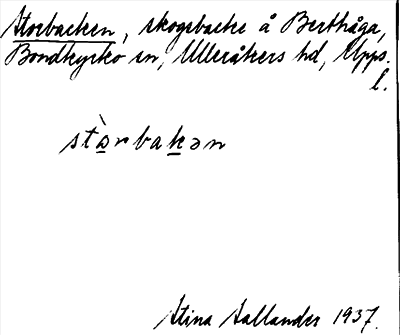 Storbacken, skogsbacke å Berthåga,
Bondkyrko sn, Ulleråkers hd, Upps.
l.
stòrbakən
Stina Aallander 1937.